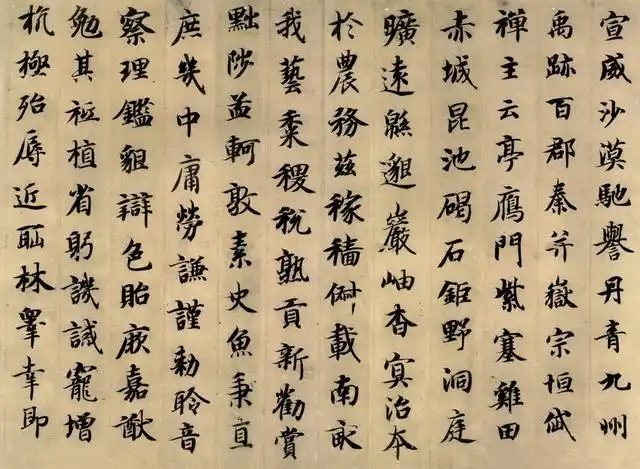 宣威沙漠馳譽丹青九州
禹跡百郡秦并嶽宗恒岱
禪主云亭鴈門紫塞雞田
赤城昆池碣石鉅野洞庭
曠遠緜邈巖岫杳冥治本
於農務茲稼穡俶載南畝
我藝黍稷稅熟貢新勸賞
黜陟孟軻敦素史魚秉直
庶幾中庸勞謙謹勑聆音
察理鑑貌辯色貽厥嘉猷
勉其祗植省躬譏誡寵增
抗極殆辱近恥林皋幸即